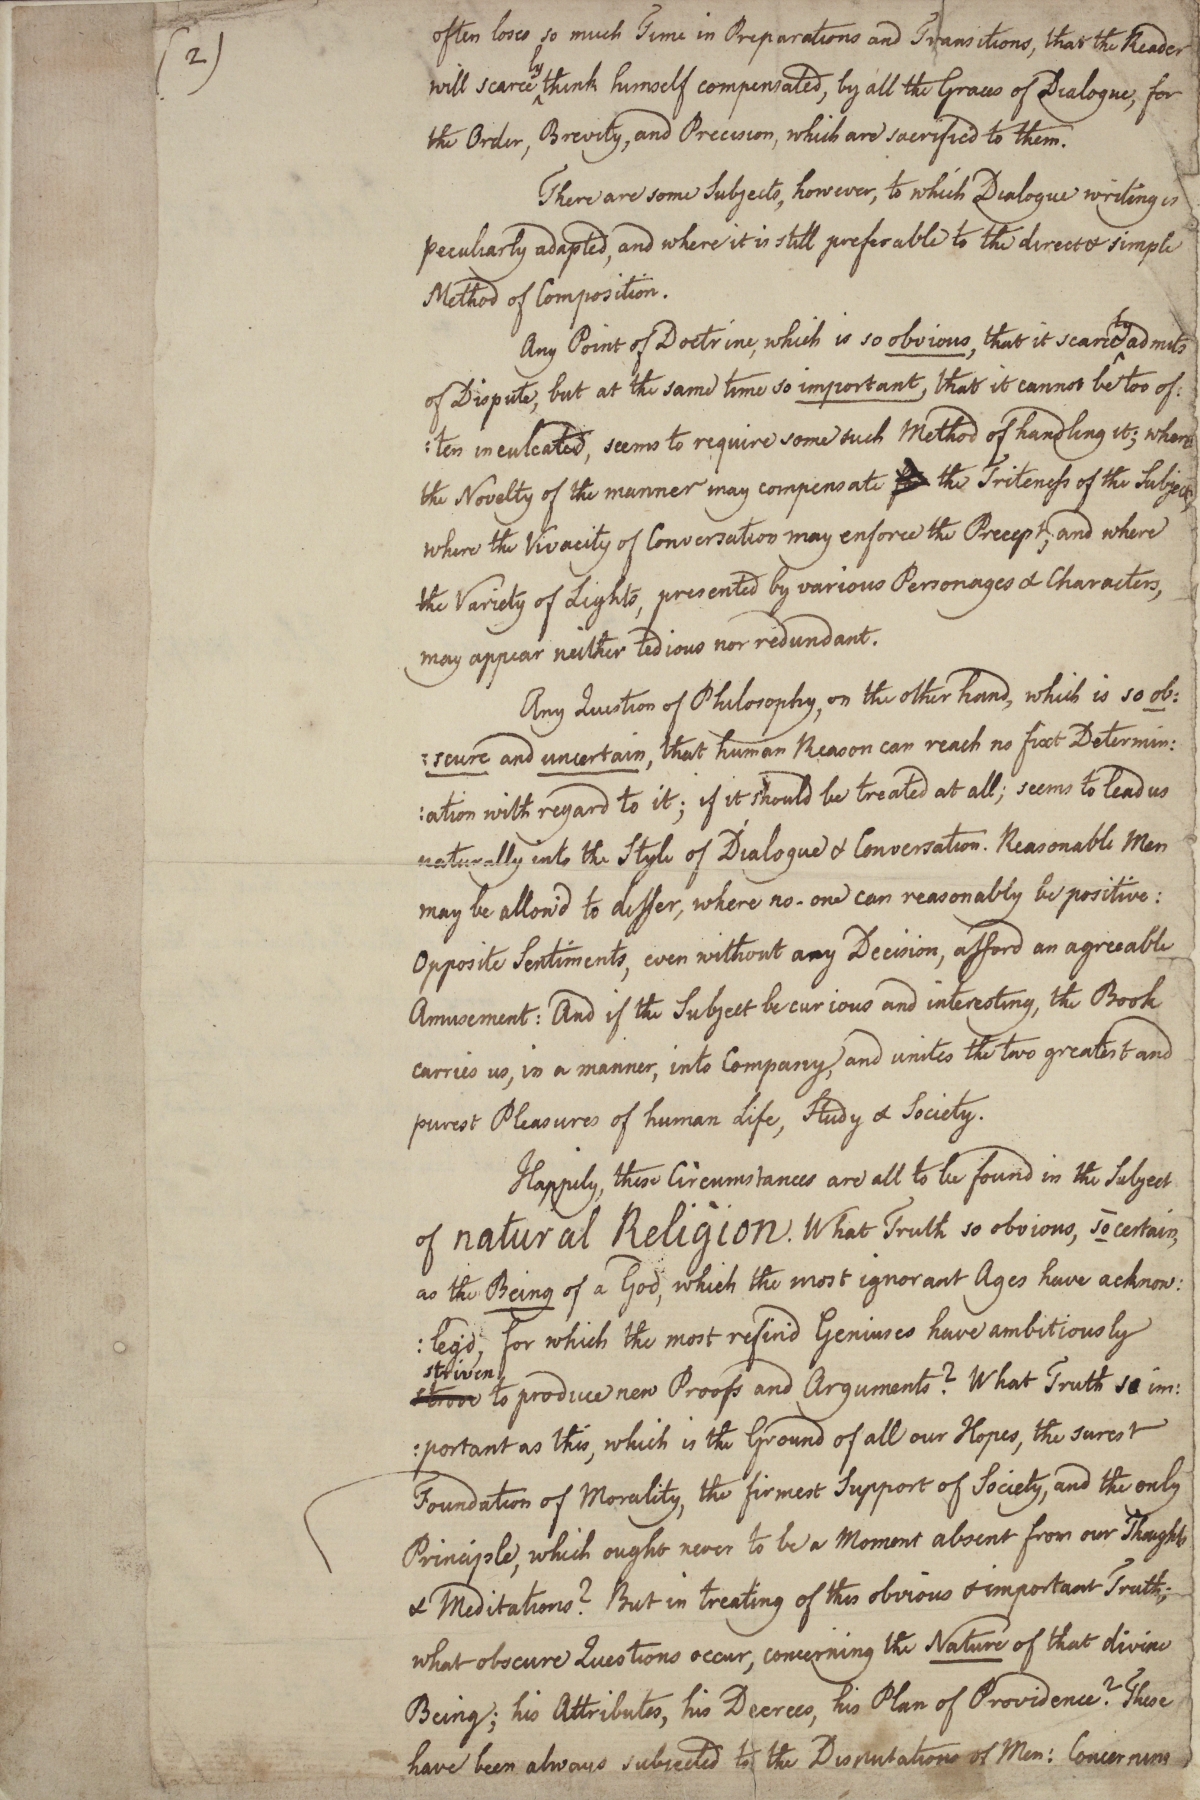 (2)
often loses so much Time in Preparations and Transitions, that the Reader
will scarcely think himself compensated, by all the Graces of Dialogue, for
the Order, Brevity, and Precision, which are sacrificed to them.
There are some Subjects, however, to which Dialogue writing is
peculiarly adapted, and where it is still preferable to the direct & simple
Method of Composition.
Any Point of Doctrine, which is so obvious, that it scarcely admits
of Dispute, but at the same time so important, that it cannot be too of:
:ten inculcated, seems to require some such Method of handling it; where
the Novelty of the manner may compensate the Triteness of the Subject,
where the Vivacity of Conversation may enforce the Precept, and where
the Variety of Lights, presented by various Personages & Characters,
may appear neither tedious nor redundant.
Any Question of Philosophy, on the other hand, which is so ob:
:scure and uncertain, that human Reason can reach no fixt Determin:
:ation with regard to it; if it should be treated at all; seems to lead us
naturally into the Style of Dialogue & Conversation. Reasonable Men
may be allow'd to differ, where no-one can reasonably be positive:
Opposite Sentiments, even without any Decision, afford an agreeable
Amusement: And if the Subject be curious and interesting, the Book
carries us, in a manner, into Company, and unites the two greatest and
purest Pleasures of human Life, Study & Society.
Happily, these Circumstances are all to be found in the Subject
of natural Religion. What Truth so obvious, so certain,
as the Being of a God, which the most ignorant Ages have acknow:
:leg'd, for which the most refin'd Geniuses have ambitiously
striven
strove to produce new Proofs and Arguments? What Truth so im:
:portant as this, which is the Ground of all our Hopes, the surest
Foundation of Morality, the firmest Support of Society, and the only
Principle, which ought never to be a Moment absent from our Thoughts
& Meditations? But in treating of this obvious & important Truth;
what obscure Questions occur, concerning the Nature of that divine
Being; his Attributes, his Decrees, his Plan of Providence? These
have been always subjected to the Disputations of Men: Concerning